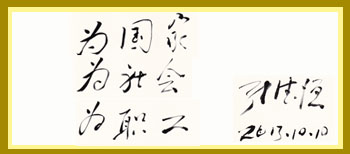 为国家
为社会
为职工
2013.10.10